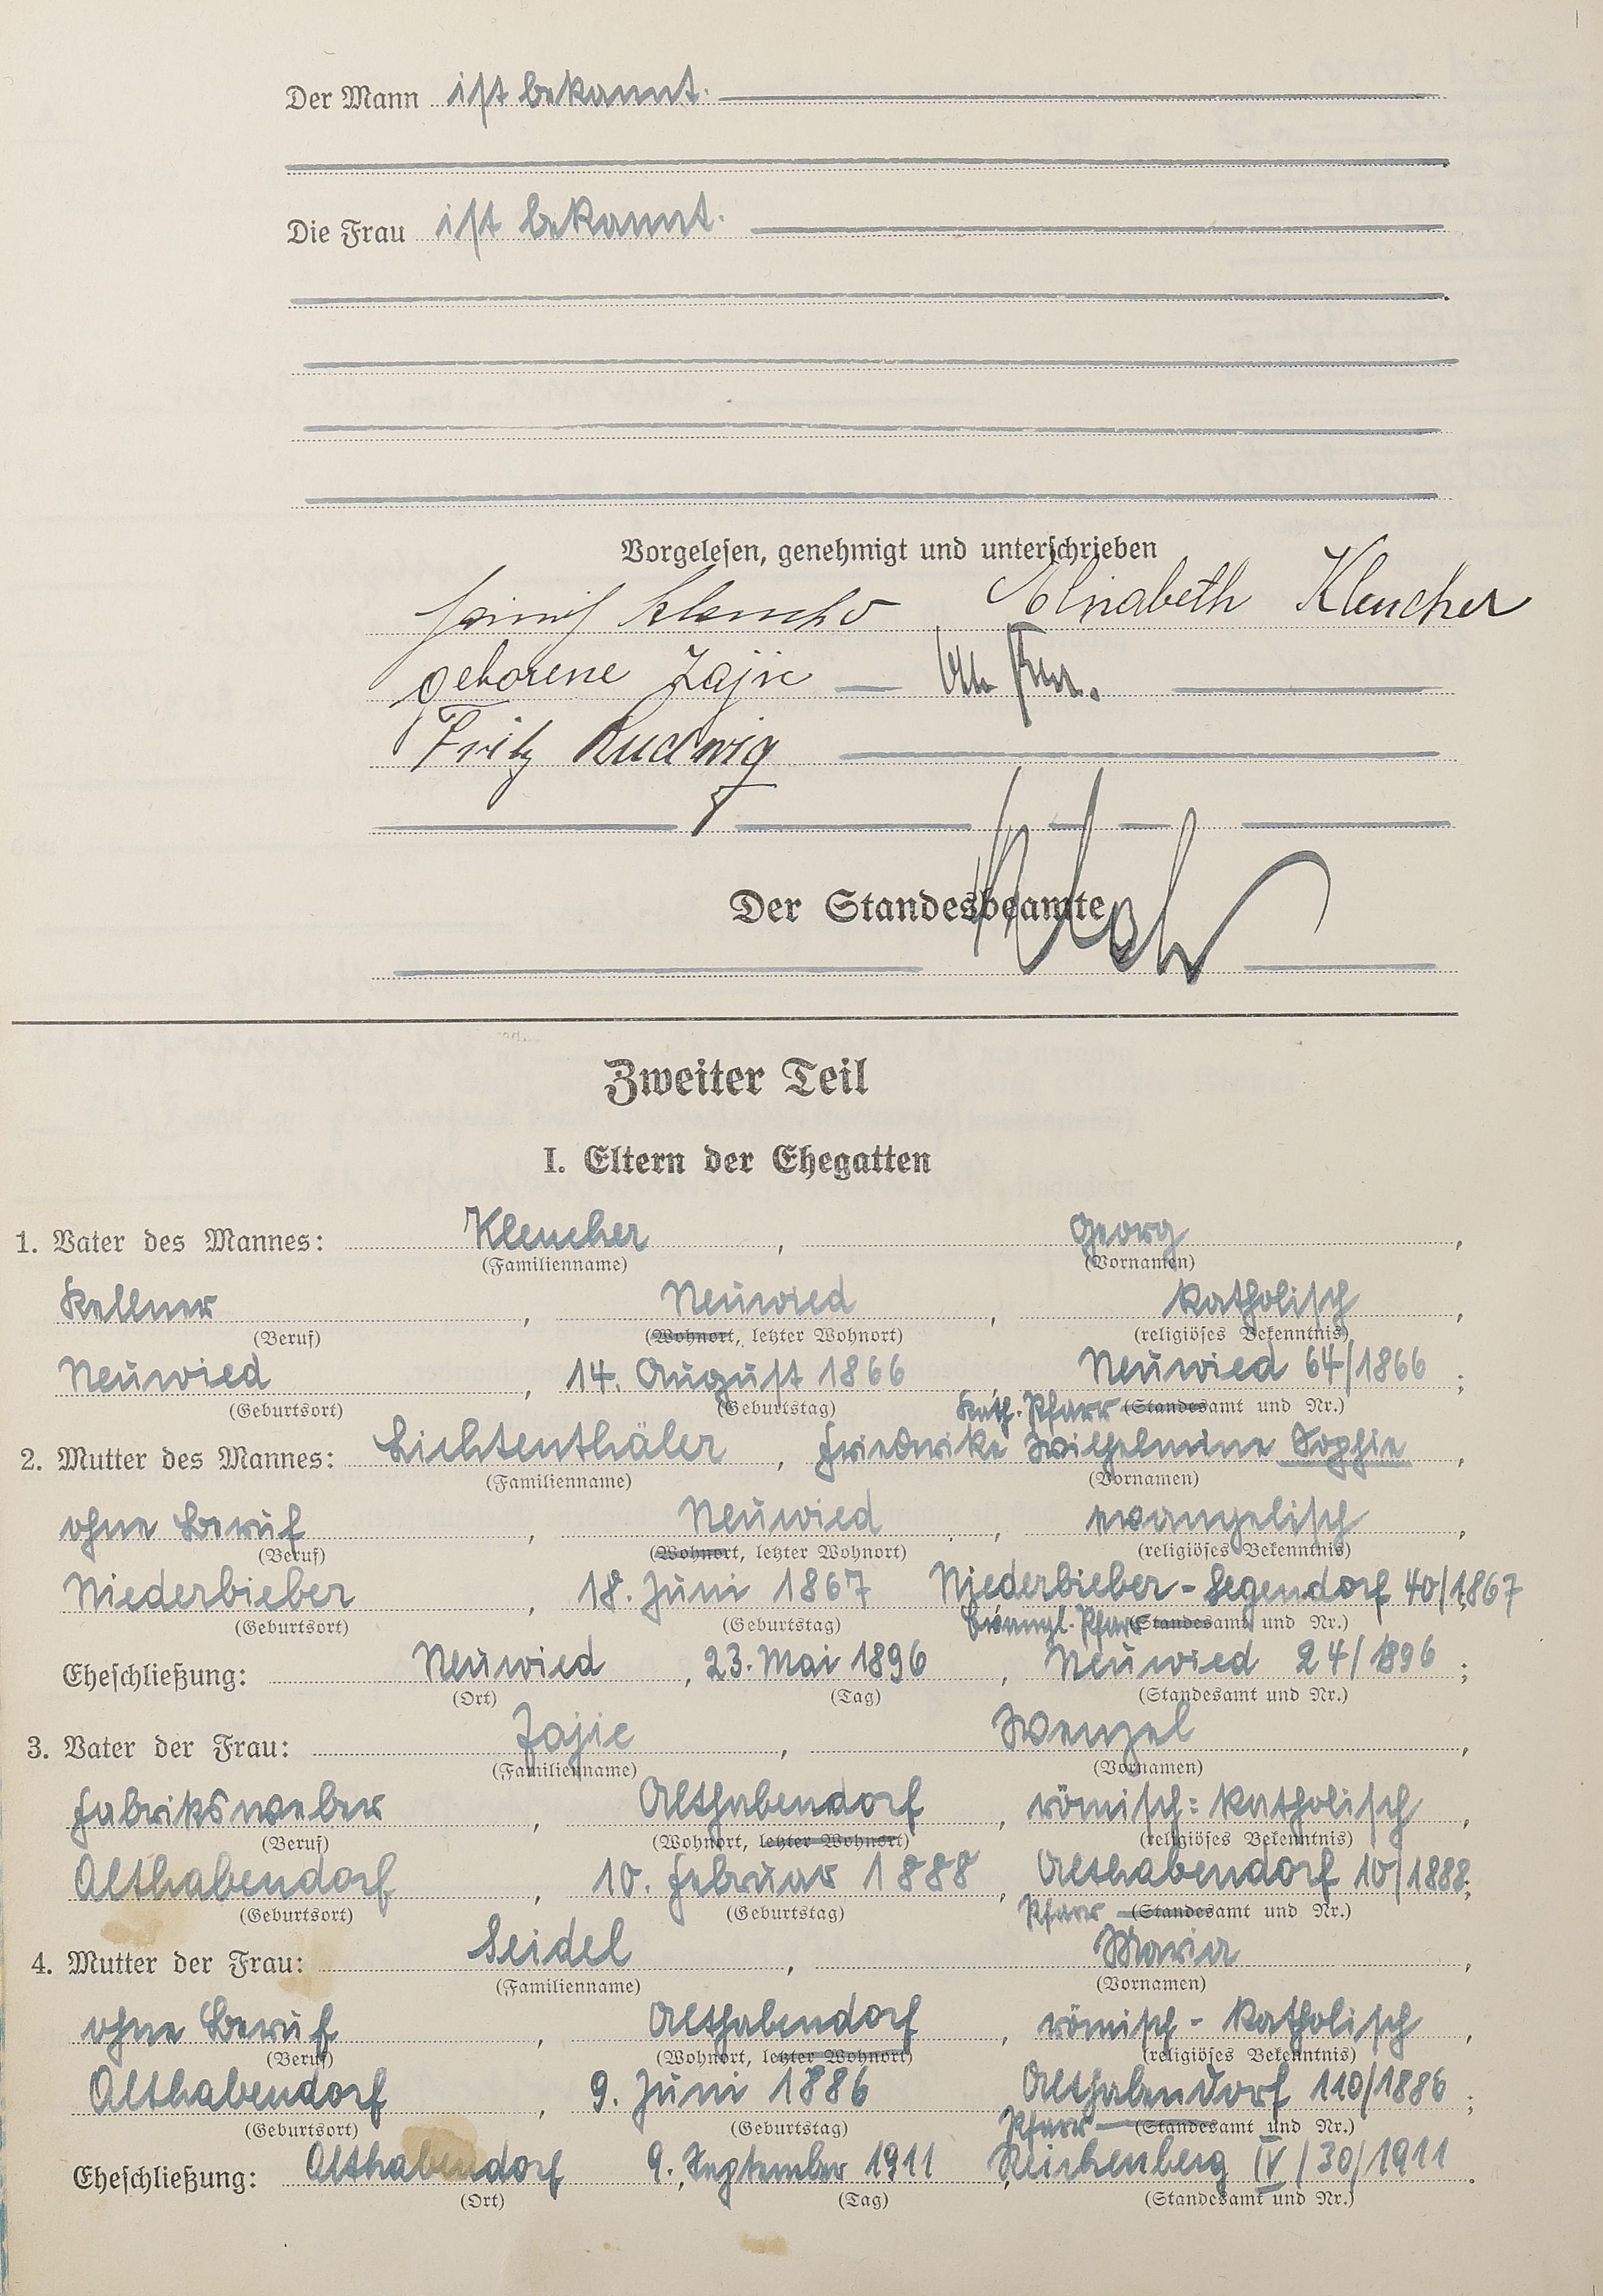 Der Mann ist bekannt.
Die Frau ist bekannt.
Vorgelesen, genehmigt und unterschrieben
Elisabeth Kleucher
geborene Zajic
Fritz Ludwig
Der Standesbeamte
Zweiter Teil
I. Eltern der Ehegatten
1. Vater des Mannes: Kleucher, Georg,
(Familienname) (Vornamen)
Kellner, Neuwied, katholisch,
(Beruf) (Wohnort, letzter Wohnort) (religiöses Bekenntnis)
Neuwied, 14. August 1866 Neuwied 64/1866;
(Geburtsort) (Geburtstag) Kath. Pfarr (Standesamt und Nr.)
2. Mutter des Mannes: Lichtenthäler, Friedrike Wilhelmine Sophie,
(Familienname) (Vornamen)
ohne Beruf, Neuwied, evangelisch,
(Beruf) (Wohnort, letzter Wohnort) (religiöses Bekenntnis)
Niederbieber, 18. Juni 1867 Niederbieber-Segendorf 40/1867
(Geburtsort) (Geburtstag) Evangl. Pfarr (Standesamt und Nr.)
Eheschließung: Neuwied, 23. Mai 1896, Neuwied 24/1896;
(Ort) (Tag) (Standesamt und Nr.)
3. Vater der Frau: Zajic, Wenzel,
(Familienname) (Vornamen)
Fabriksweber, Althabendorf, römisch-katholisch,
(Beruf) (Wohnort, letzter Wohnort) (religiöses Bekenntnis)
Althabendorf, 10. Februar 1888, Althabendorf 10/1888;
(Geburtsort) (Geburtstag) Pfarr (Standesamt und Nr.)
4. Mutter der Frau: Seidel, Maria,
(Familienname) (Vornamen)
ohne Beruf, Althabendorf, römisch-katholisch,
(Beruf) (Wohnort, letzter Wohnort) (religiöses Bekenntnis)
Althabendorf, 9. Juni 1886 Althabendorf 110/1886;
(Geburtsort) (Geburtstag) Pfarr (Standesamt und Nr.)
Eheschließung: Althabendorf 9. September 1911, Reichenberg IV/30/1911.
(Ort) (Tag) (Standesamt und Nr.)